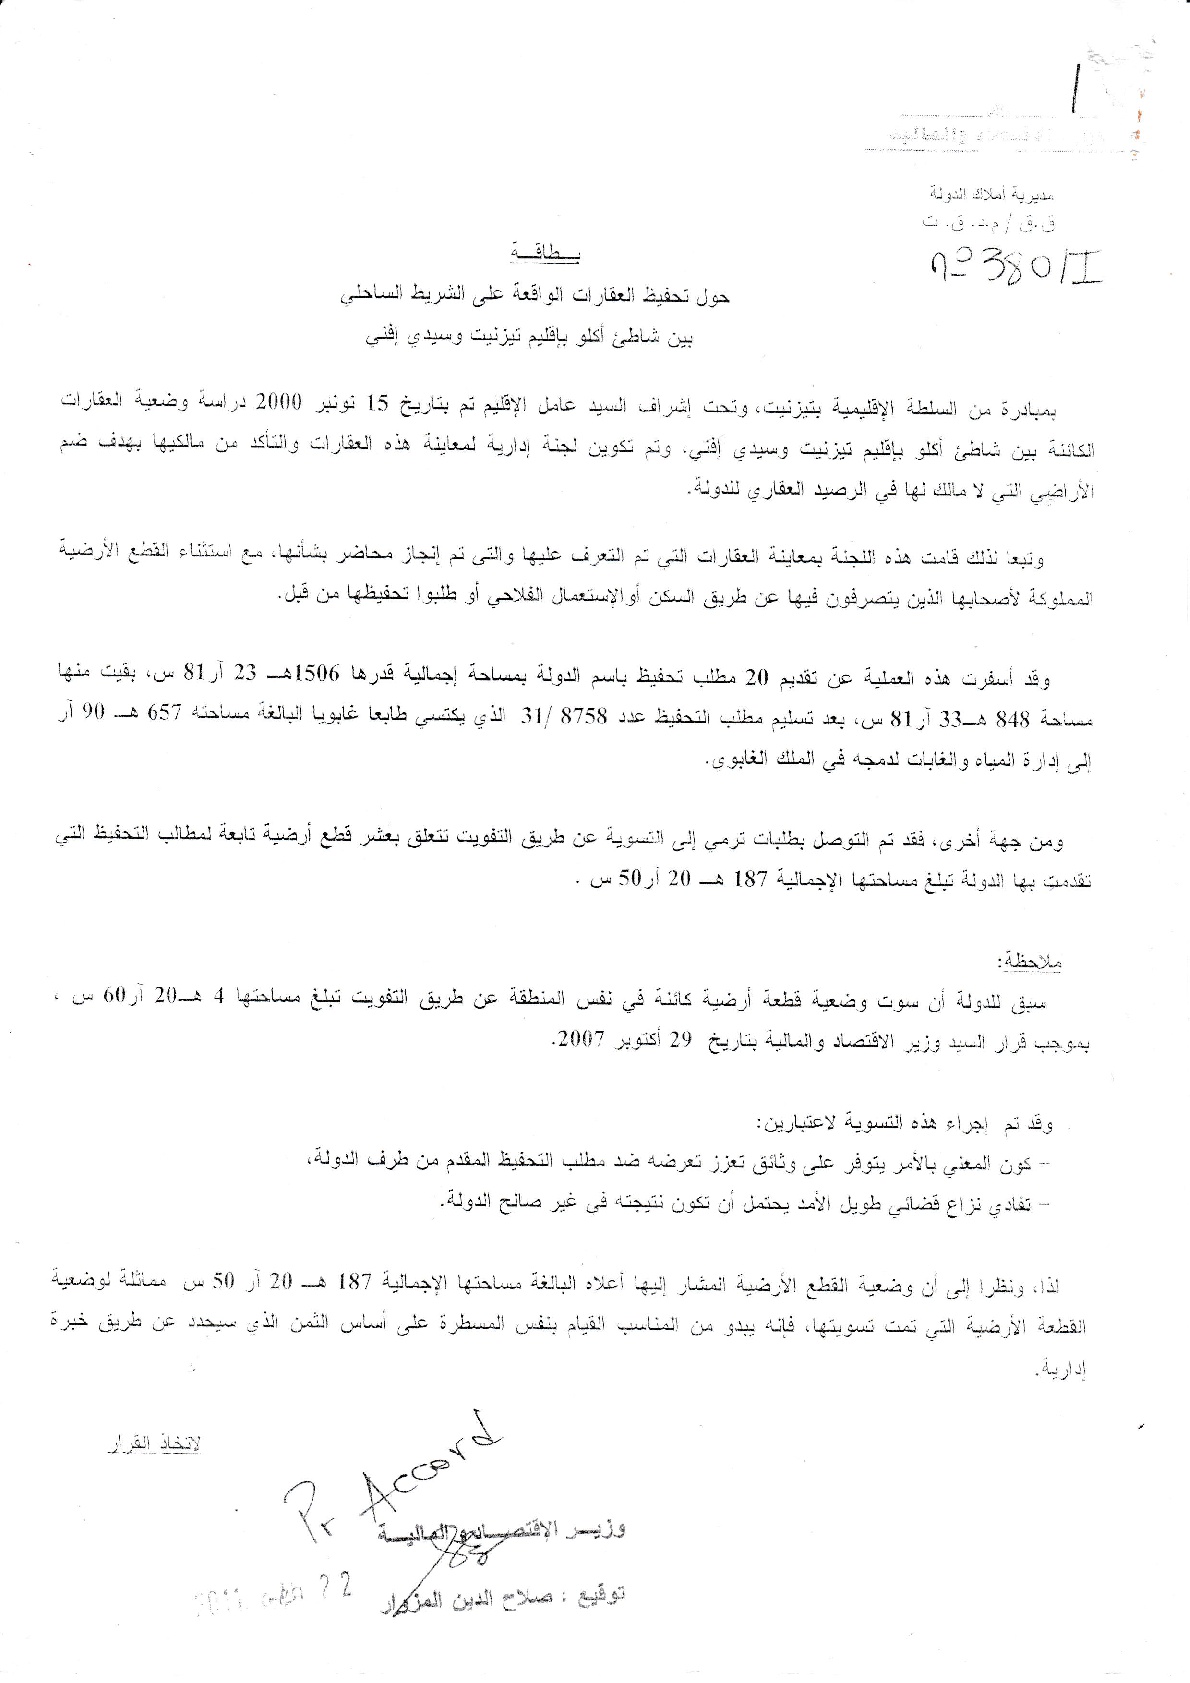 مديرية أملاك الدولة
ق.ق / م.د. ق. ت
n° 380/I
بـــطاقـــة
حول تحفيظ العقارات الواقعة على الشريط الساحلي
بين شاطئ أكلو بإقليم تيزنيت وسيدي إفني
بمبادرة من السلطة الإقليمية بتيزنيت، وتحت إشراف السيد عامل الإقليم تم بتاريخ 15 نونبر 2000 دراسة وضعية العقارات
الكائنة بين شاطئ أكلو بإقليم تيزنيت وسيدي إفني. وتم تكوين لجنة إدارية لمعاينة هذه العقارات والتأكد من مالكيها بهدف ضم
الأراضي التي لا مالك لها في الرصيد العقاري للدولة.
وتبعا لذلك قامت هذه اللجنة بمعاينة العقارات التي تم التعرف عليها والتي تم إنجاز محاضر بشأنها، مع استثناء القطع الأرضية
المملوكة لأصحابها الذين يتصرفون فيها عن طريق السكن أوالاستعمال الفلاحي أو طلبوا تحفيظها من قبل.
وقد أسفرت هذه العملية عن تقديم 20 مطلب تحفيظ باسم الدولة بمساحة إجمالية قدرها 1506هـ 23 آر81 س، بقيت منها
مساحة 848 هـ33 آر81 س، بعد تسليم مطلب التحفيظ عدد 8758 /31 الذي يكتسي طابعا غابويا البالغة مساحته 657 هـ 90 آر
إلى إدارة المياه والغابات لدمجه في الملك الغابوي.
ومن جهة أخرى، فقد تم التوصل بطلبات ترمي إلى التسوية عن طريق التفويت تتعلق بعشر قطع أرضية تابعة لمطالب التحفيظ التي
تقدمت بها الدولة تبلغ مساحتها الإجمالية 187 هـ 20 آر50 س .
ملاحظة:
سبق للدولة أن سوت وضعية قطعة أرضية كائنة في نفس المنطقة عن طريق التفويت تبلغ مساحتها 4 هـ20 آر60 س ،
بموجب قرار السيد وزير الاقتصاد والمالية بتاريخ 29 أكتوبر 2007.
وقد تم إجراء هذه التسوية لاعتبارين:
- كون المعني بالأمر يتوفر على وثائق تعزز تعرضه ضد مطلب التحفيظ المقدم من طرف الدولة،
- تفادي نزاع قضائي طويل الأمد يحتمل أن تكون نتيجته في غير صالح الدولة.
لذا، ونظرا إلى أن وضعية القطع الأرضية المشار إليها أعلاه البالغة مساحتها الإجمالية 187 هـ 20 آر 50 س مماثلة لوضعية
القطعة الأرضية التي تمت تسويتها، فإنه يبدو من المناسب القيام بنفس المسطرة على أساس الثمن الذي سيحدد عن طريق خبرة
إدارية.
لاتخاذ القرار
Pr Accord
وزيــر الاقتصــاد والماليــة
توقيع : صلاح الدين المزوار
22